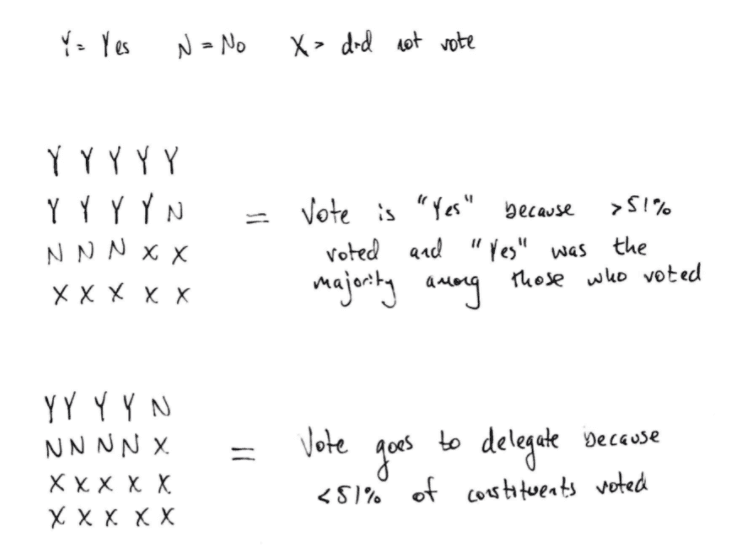 Y = Yes N = No X = did not vote
Y Y Y Y Y
Y Y Y Y N = Vote is "Yes" because >51%
N N N X X voted and "Yes" was the
X X X X X majority among those who voted
Y Y Y Y N
N N N N X = Vote goes to delegate because
X X X X X <51% of constituents voted
X X X X X